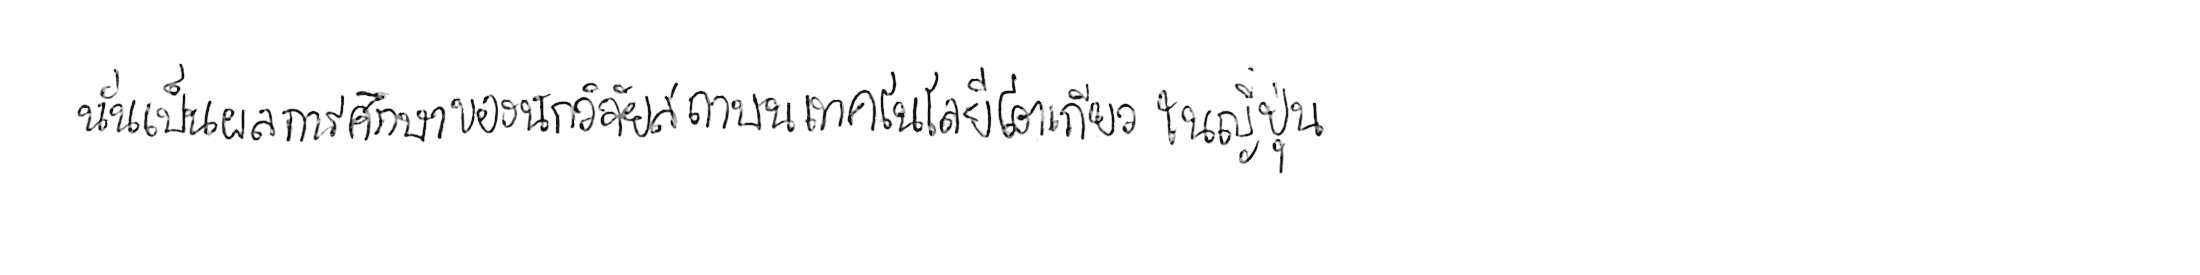 นั่นเป็นผลการศึกษาของนักวิจัยสถาบนเทคโนโลยีโตเกียว ในญี่ปุ่น